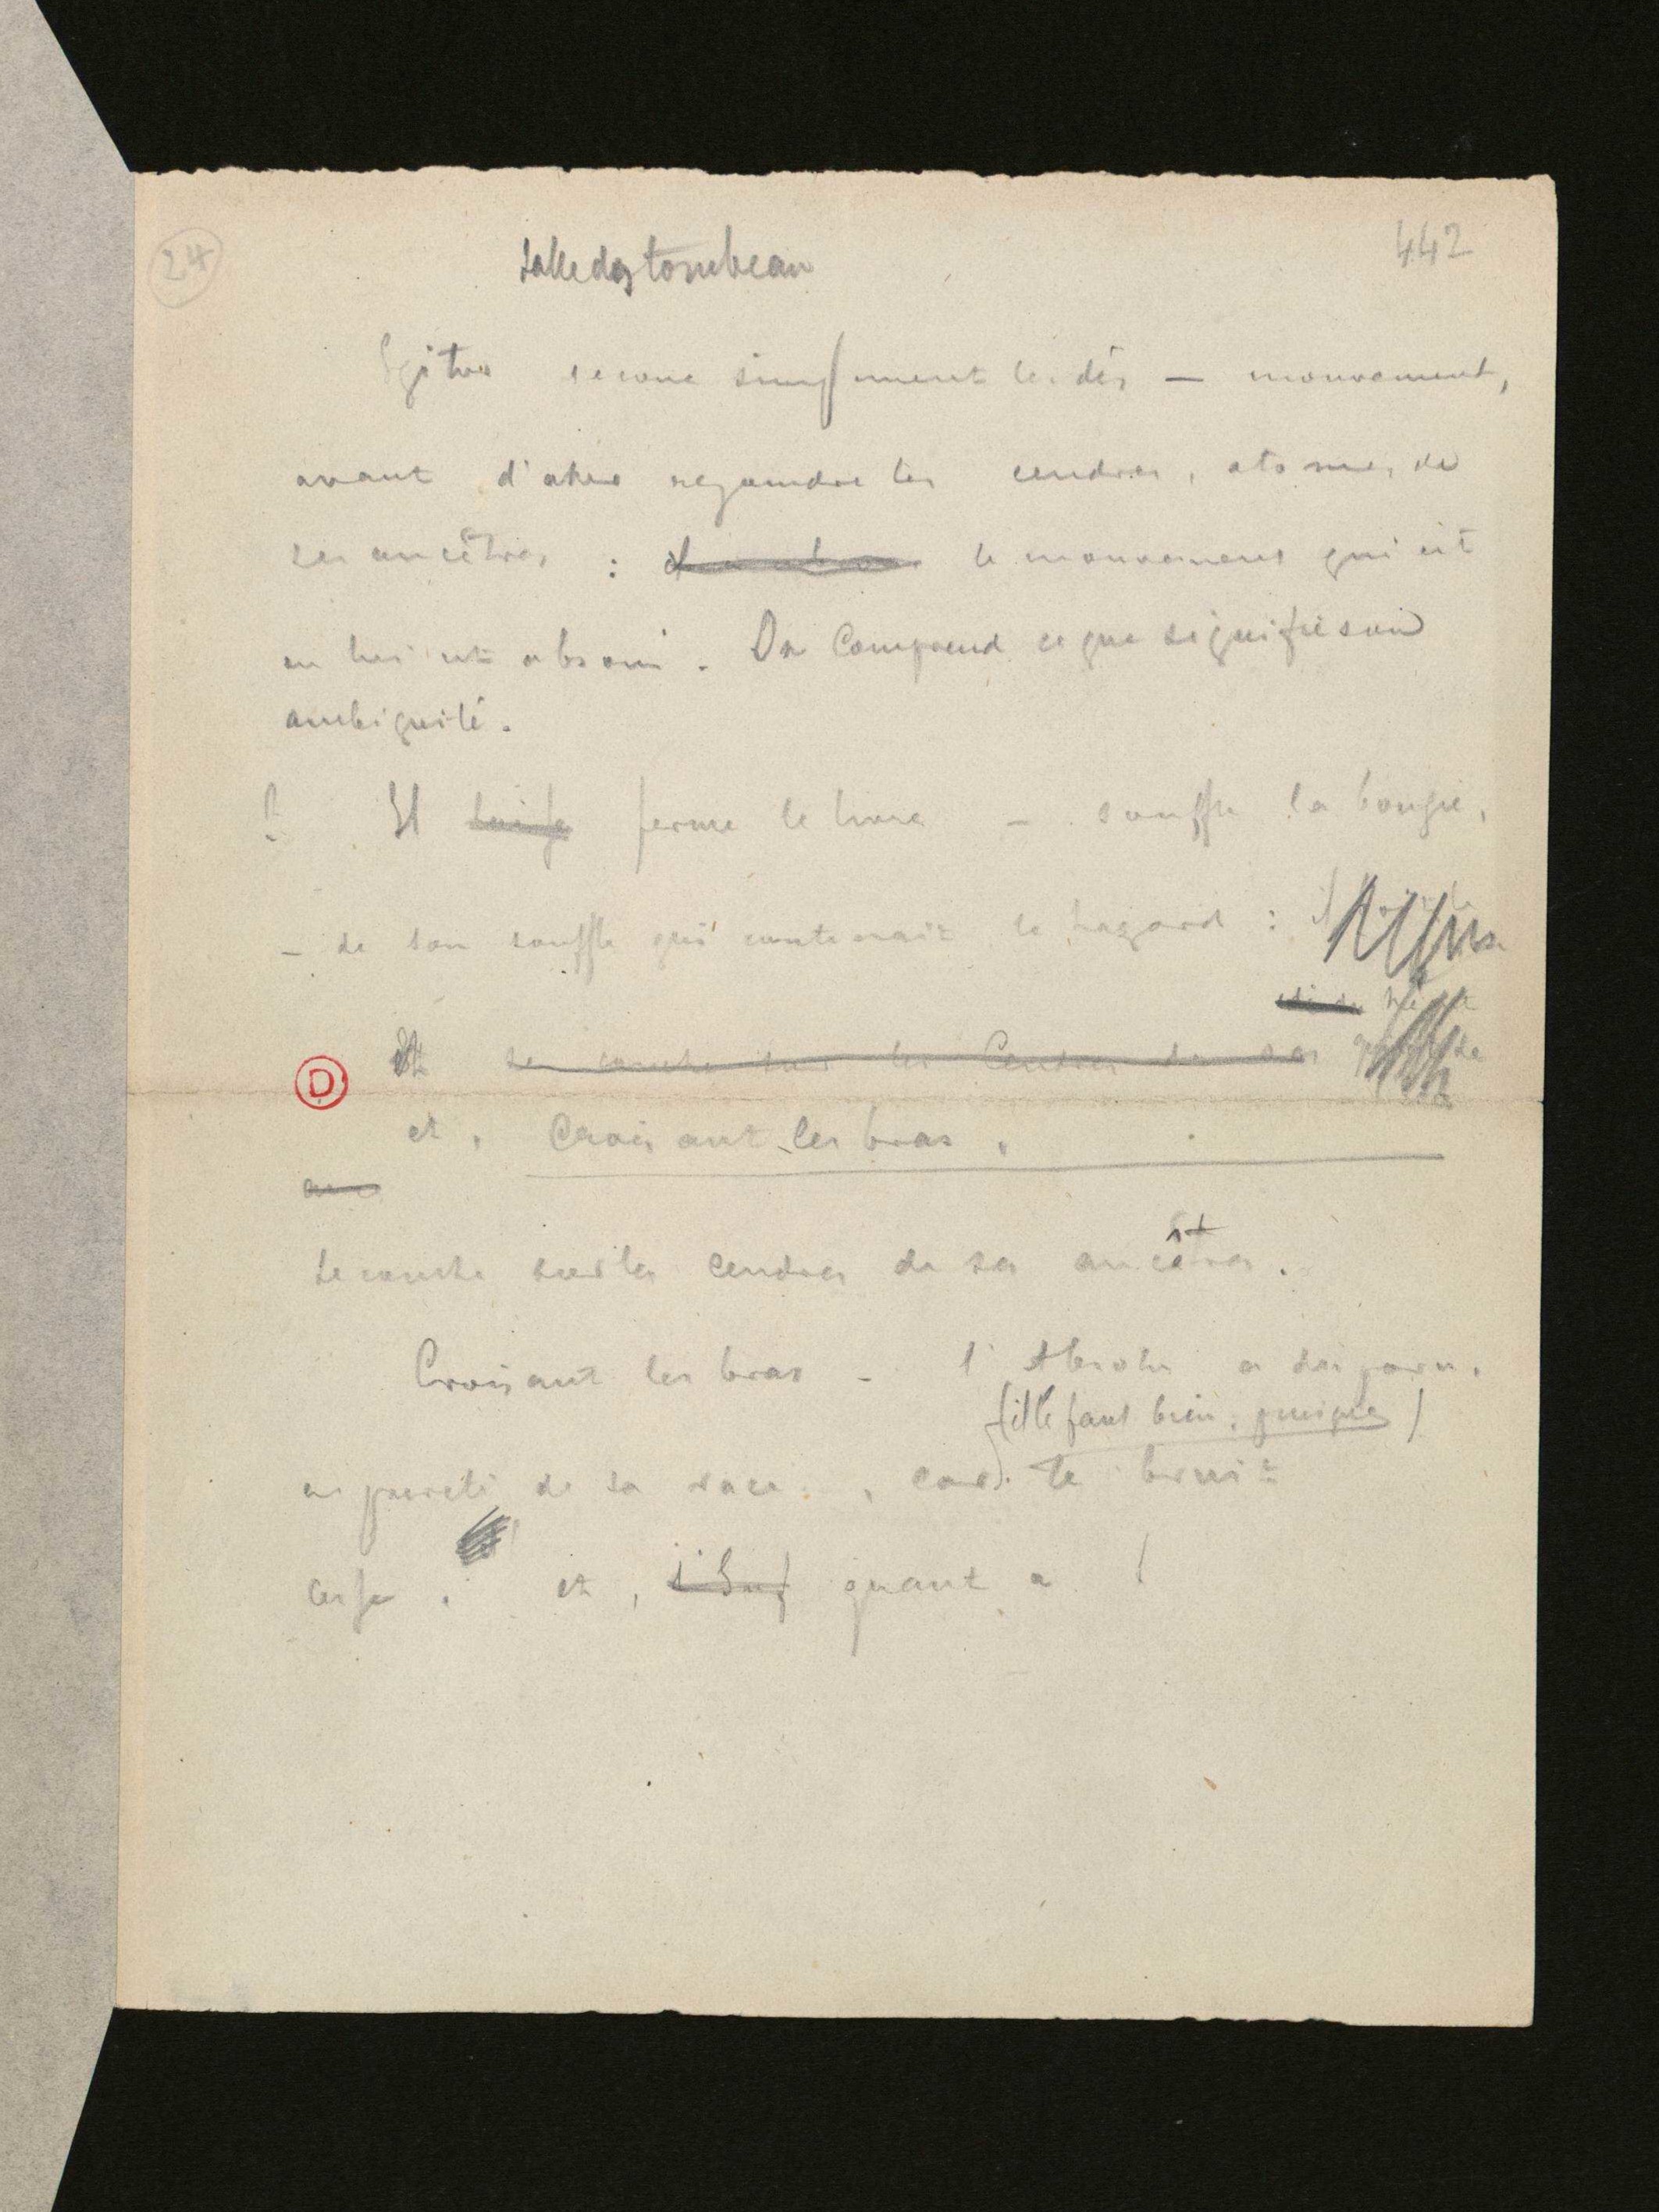 24
442
Salle des tombeau
Igitur secoue simplement les dés — mouvement,
avant d'aller rejoindre les cendres, atomes de
ses ancêtres : le mouvement qui est
en lui est absous. On Comprend ce que signifie son
ambiguité.
? Il ferme le livre — souffle la bougie,
— de son souffle qui contenait le hazard :
Et se couche sur les Cendres de ses
D
et, Croisant les bras,
se couche sur les cendres de ses ancêtres.
Croisant les bras — l'Absolu a disparu,
(il le faut bien, puisque)
en pureté de sa race, car le bruit
cesse. et, quant à